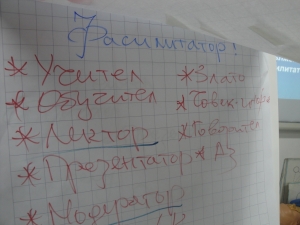 Фасилитатор!
* Учител
* Обучител
* Лектор
* Презентатор
* Модератор
* Злато
* Човек-
* Говорител
* Аз